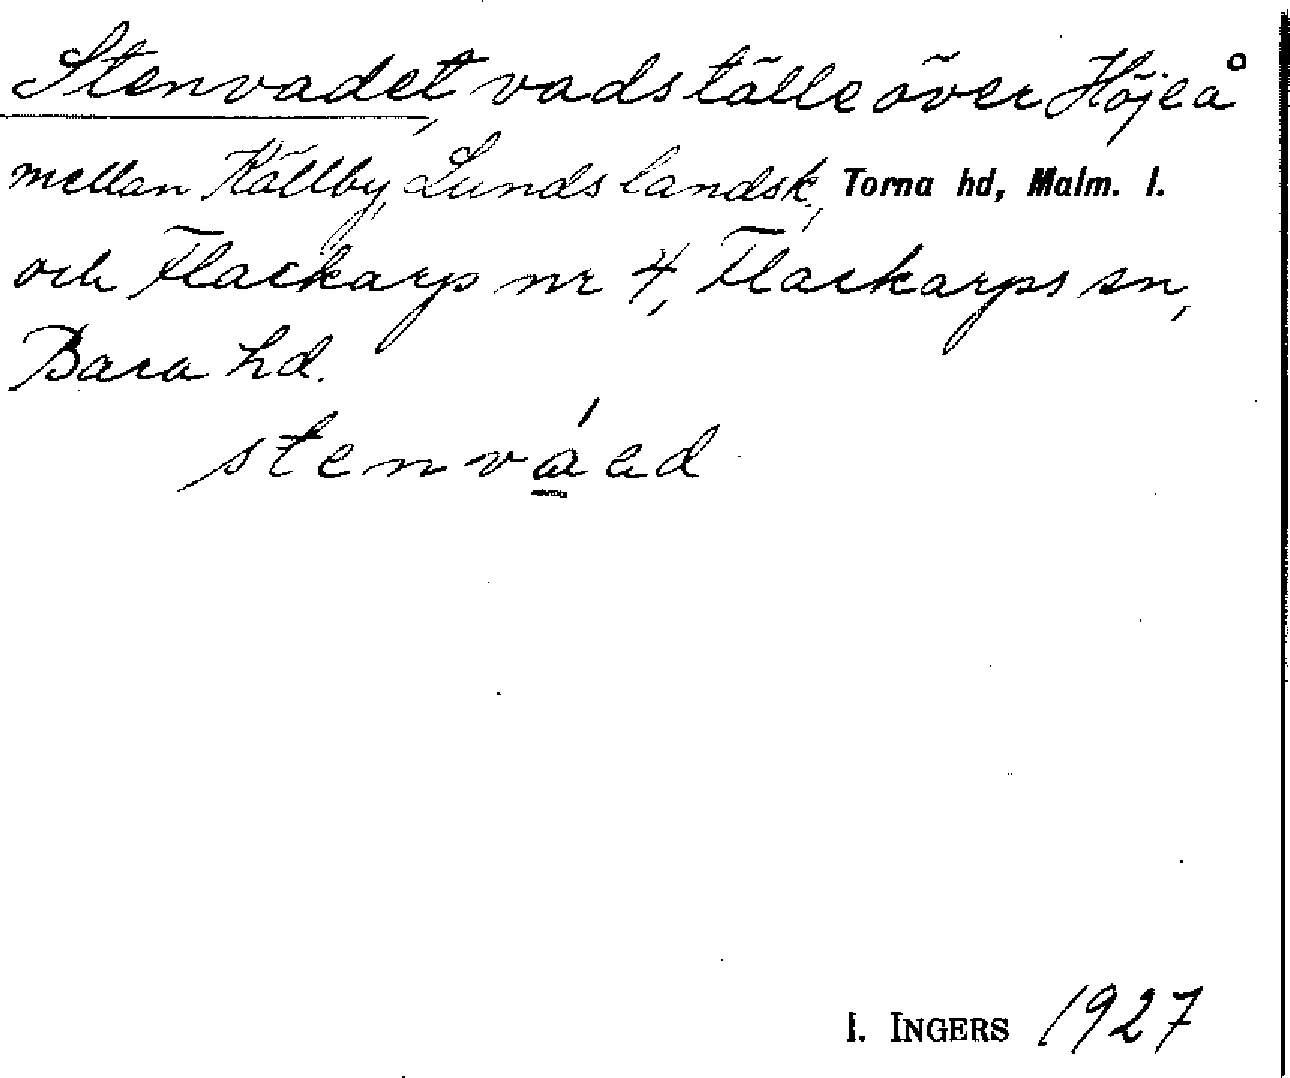 Stenvadet, vadställe över Höjeå
mellan Källby, Lunds landsk., Torna hd, Malm. l.
och Flackarp nr 4, Flackarps sn,
Bara hd.
stenváed
I. INGERS 1927